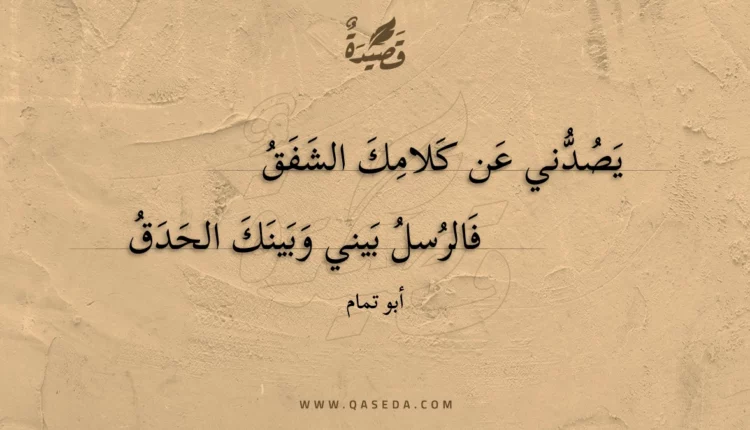 قَصِيْدَةٌ
يَصُدُّني عَن كَلامِكَ الشَفَقُ
فَالرُسلُ بَيني وَبَينَكَ الحَدَقُ
أبو تمام
WWW.QASEDA.COM